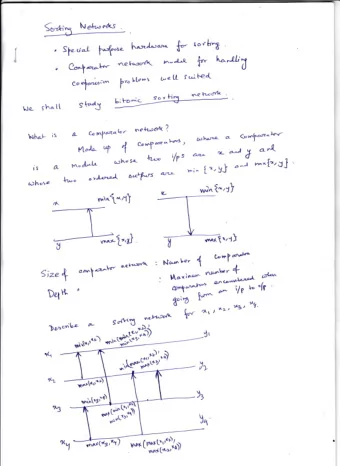 Sorting Networks.
• Special purpose hardware for sorting.
• Comparator network model for handling
comparison problems well suited
We shall study bitonic sorting network.
What is a comparator network?
Made up of comparators, where a comparator
is a module whose two i/ps are x and y and
whose two ordered outputs are min {x,y} and max{x,y}.
x min{x,y} x min{x,y}
y max{x,y} y max{x,y}
Size of comparator network : Number of comparators
Depth : Maximum number of
comparators encountered when
going from an i/p to o/p.
Describe a sorting network for x1, x2, x3, x4.
x1 min(x1,x2) min(min(x1,x2), min(x3,x4)) y1
x2 max(x1,x2) min(max(x1,x2), max(x3,x4)) y2
x3 min(x3,x4) max(min(x1,x2), min(x3,x4)) y3
x4 max(x3,x4) max(max(x1,x2), max(x3,x4)) y4